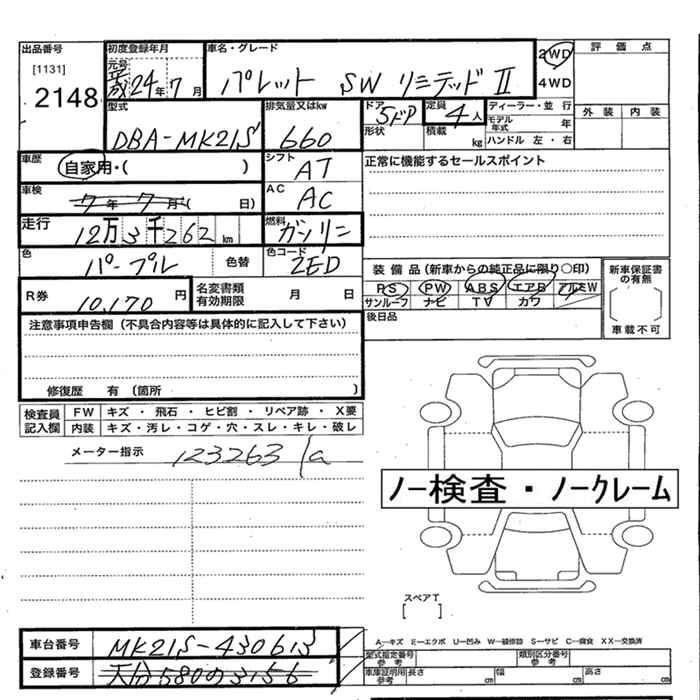 出品番号
[1131]
2148
初度登録年月
元号
平成 24年 7月
車名・グレード
パレット SW リミテッド II
2WD
4WD
評価点
外装 内装
型式
DBA-MK21S
排気量又はkw
660
ドア
5ドア
形状
定員
4人
積載 kg
ディーラー・並行
モデル年式 年
ハンドル 左・右
車歴
自家用・( )
シフト
AT
正常に機能するセールスポイント
車検
7年 7月( 日)
AC
AC
走行
12万3千262km
燃料
ガソリン
色
パープル
色替
色コード
ZED
装備品(新車からの純正品に限り〇印)
PS PW ABS エアB アルミW
サンルーフ ナビ TV カワ
後日品
新車保証書の有無
車載不可
R券
10,170円
名変書類有効期限 月 日
注意事項申告欄(不具合内容等は具体的に記入して下さい)
修復歴 有(箇所 )
検査員記入欄
FW キズ・飛石・ヒビ割・リペア跡・X要
内装 キズ・汚レ・コゲ・穴・スレ・キレ・破レ
メーター指示 123263
ノー検査・ノークレーム
スペアT
[ ]
A…キズ ミ…エクボ U…凹み W…補修跡 S…サビ C…腐食 XX…交換済
車台番号
MK21S-430613
型式指定番号参考
類別区分番号参考
登録番号
大分580の3156
車庫証明用参考 長さ cm 幅 cm 高さ cm